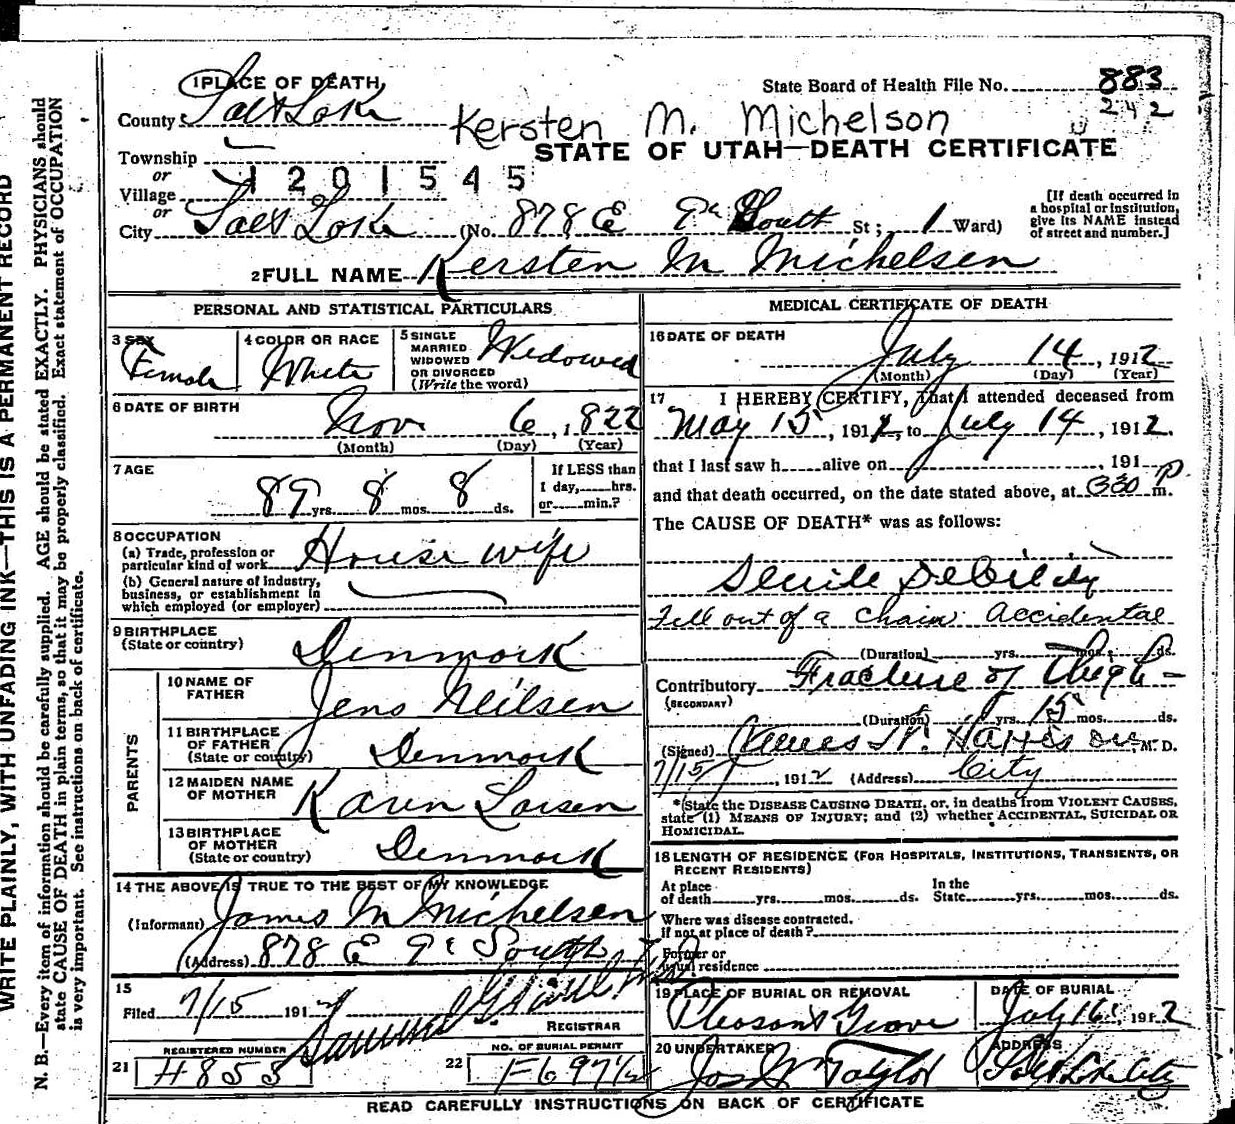 1 PLACE OF DEATH
State Board of Health File No. 883
242
County Salt Lake
Kersten M. Michelson
STATE OF UTAH—DEATH CERTIFICATE
Township
or
1201545
Village
or
City Salt Lake (No. 878 E 9th South St; 1 Ward)
[If death occurred in a hospital or institution, give its NAME instead of street and number.]
2 FULL NAME Kersten M Michelsen
PERSONAL AND STATISTICAL PARTICULARS
3 SEX Female
4 COLOR OR RACE White
5 SINGLE MARRIED WIDOWED OR DIVORCED (Write the word) Widowed
6 DATE OF BIRTH Nov 6, 1822
(Month) (Day) (Year)
7 AGE 89 yrs. 8 mos. 8 ds.
If LESS than 1 day,......hrs. or......min.?
8 OCCUPATION
(a) Trade, profession or particular kind of work House wife
(b) General nature of industry, business, or establishment in which employed (or employer)
9 BIRTHPLACE (State or country) Denmark
PARENTS
10 NAME OF FATHER Jens Neilsen
11 BIRTHPLACE OF FATHER (State or country) Denmark
12 MAIDEN NAME OF MOTHER Karen Larsen
13 BIRTHPLACE OF MOTHER (State or country) Denmark
14 THE ABOVE IS TRUE TO THE BEST OF MY KNOWLEDGE
(Informant) James M Michelsen
(Address) 878 E 9t South
15
Filed 7/15 1912
REGISTRAR
REGISTERED NUMBER
21 H853
NO. OF BURIAL PERMIT
22
MEDICAL CERTIFICATE OF DEATH
16 DATE OF DEATH
July 14, 1912
(Month) (Day) (Year)
17 I HEREBY CERTIFY, That I attended deceased from
May 15, 1912, to July 14, 1912.
that I last saw h......alive on......, 191
and that death occurred, on the date stated above, at 330 P m.
The CAUSE OF DEATH* was as follows:
Senile Debility
Fell out of a chair Accidental
(Duration) yrs. mos. ds.
Contributory Fracture of Thigh
(SECONDARY)
(Duration) yrs. mos. ds.
(Signed) M. D.
7/15, 1912 (Address) City
*(State the DISEASE CAUSING DEATH, or, in deaths from VIOLENT CAUSES,
state (1) MEANS OF INJURY; and (2) whether ACCIDENTAL, SUICIDAL OR
HOMICIDAL.
18 LENGTH OF RESIDENCE (FOR HOSPITALS, INSTITUTIONS, TRANSIENTS, OR
RECENT RESIDENTS)
At place of death......yrs......mos......ds. In the State......yrs......mos......ds.
Where was disease contracted.
if not at place of death?
Former or
usual residence
19 PLACE OF BURIAL OR REMOVAL
Pleasant Grove
DATE OF BURIAL
July 16, 1912
20 UNDERTAKER
Jos W Taylor
ADDRESS
Salt Lake City
READ CAREFULLY INSTRUCTIONS ON BACK OF CERTIFICATE
WRITE PLAINLY, WITH UNFADING INK—THIS IS A PERMANENT RECORD
N. B.—Every item of information should be carefully supplied. AGE should be stated EXACTLY. PHYSICIANS should
state CAUSE OF DEATH in plain terms, so that it may be properly classified. Exact statement of OCCUPATION
is very important. See instructions on back of certificate.